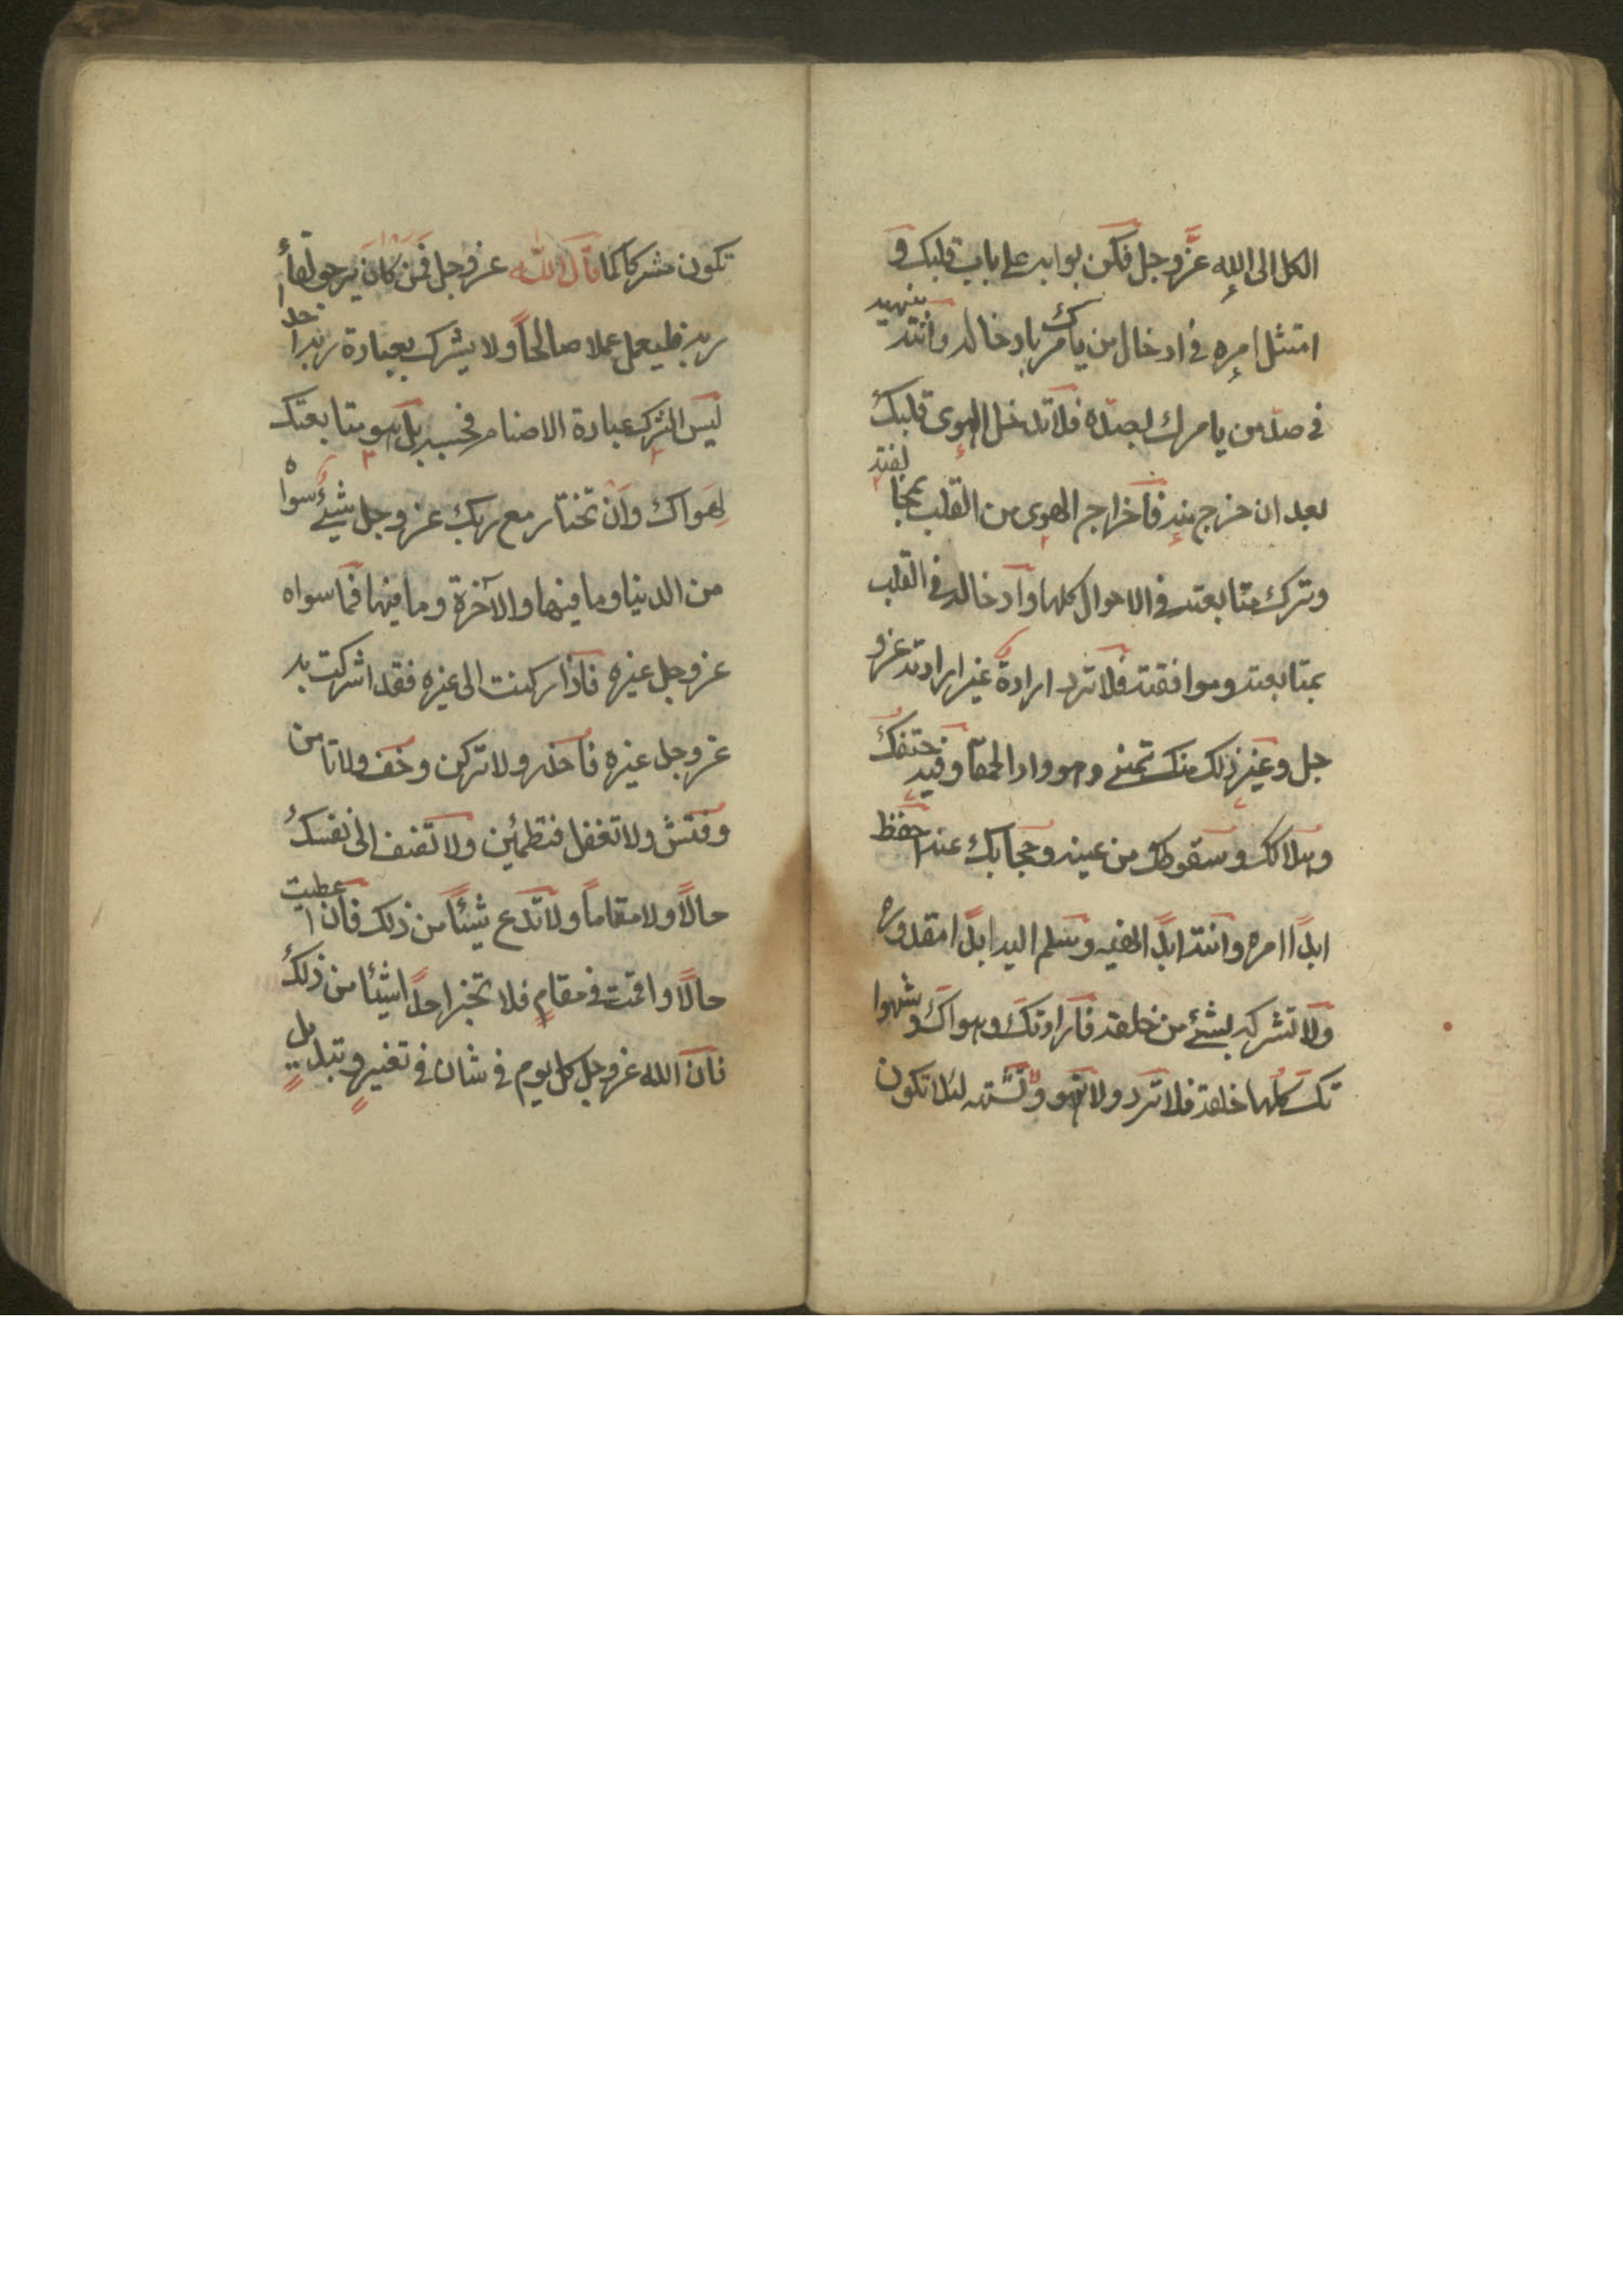 الكل الى الله عزّ وجل فكن بوابه على باب قلبك و
امتثل امره في ادخال من يأمرك بادخاله وانته بنهيه
في صدّ من يامرك بصدّه فلا تدخل الهوى قلبك
بعد ان خرج منه فاخراج الهوى من القلب بمخالفته
وترك متابعته في الاحوال كلها وادخاله في القلب
بمتابعته وموافقته فلا ترد ارادة غير ارادته عزو
جل وغير ذلك منك تمني وهو واد الحمقا وفيه حتفك
وهلاكك وسقوطك من عينه وحجابك عنه احفظ
ابدًا امره وانته ابدًا نهيه وسلم اليه ابدًا مقدوره
ولا تشركه بشئ من خلقه فارادتك وهواك وشهوا
تك كلها خلقه فلا ترد ولا تهو ولا تشته لئلا تكون
تكون مشركا كما قال الله عزوجل فمن كان يرجو لقاء
ربه فليعمل عملا صالحًا ولا يشرك بعبادة ربه احدا
ليس الشرك عبادة الاصنام فحسب بل هو متابعتك
لهواك وان تختار مع ربك عز وجل شيئ سواه
من الدنيا وما فيها والآخرة وما فيها فما سواه
عز وجل غيره فاذا ركنت الى غيره فقد اشركت به
عز وجل غيره فاحذر ولا تركن وخف ولا تامن
وفتش ولا تغفل فتطمئن ولا تضف الى نفسك
حالًا ولا مقاماً ولا تدع شيئًا من ذلك فان اعطيت
حالًا واقمت في مقام فلا تخبر احدًا شيئا من ذلك
فان الله عزوجل كل يوم في شان في تغيير وتبديل